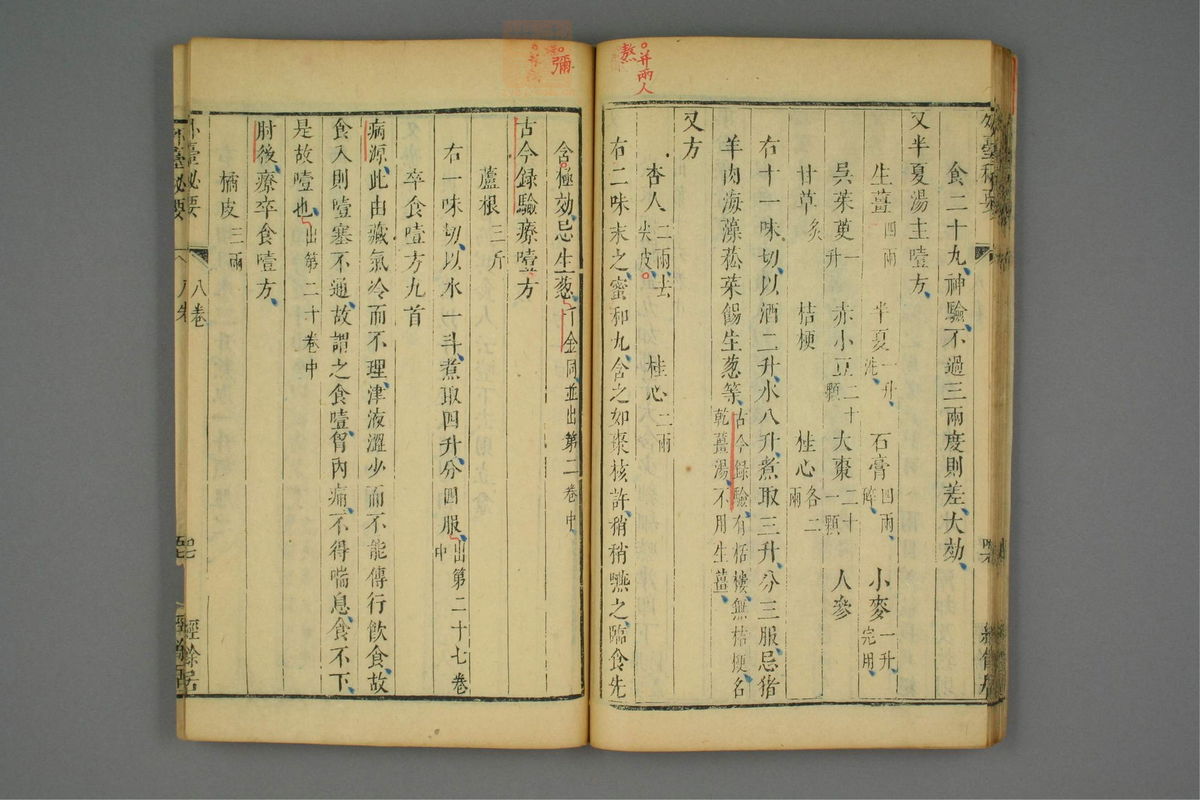 ○并兩人
熬
食二十九、神驗、不過三兩度則差、大効、
又半夏湯主噎方、
生薑四兩 半夏一升、洗、 石膏四兩、碎、 小麥一升、完用、
吳茱萸一升 赤小豆二十顆 大棗二十一顆 人參
甘草炙 桔梗 桂心各二兩
右十一味切、以酒二升、水八升、煮取三升、分三服、忌猪
羊肉海藻菘菜餳生葱等、古今録驗有栝樓、無桔梗、名乾薑湯、不用生薑、
又方
杏人二兩、去尖皮。 桂心二兩
右二味末之、蜜和丸、含之如棗核許、稍稍嚥之、臨食先
彌
含極効、忌生葱、千金同、並出第二卷中
古今録驗療噎方
蘆根三斤
右一味切、以水一斗、煮取四升、分四服、出第二十七卷中
卒食噎方九首
病源、此由藏氣冷而不理、津液澀少而不能傳行飲食、故
食入則噎塞不通、故謂之食噎、胷內痛、不得喘息、食不下、
是故噎也、出第二十卷中
肘後、療卒食噎方、
橘皮三兩
外臺秘要
八卷
經餘居